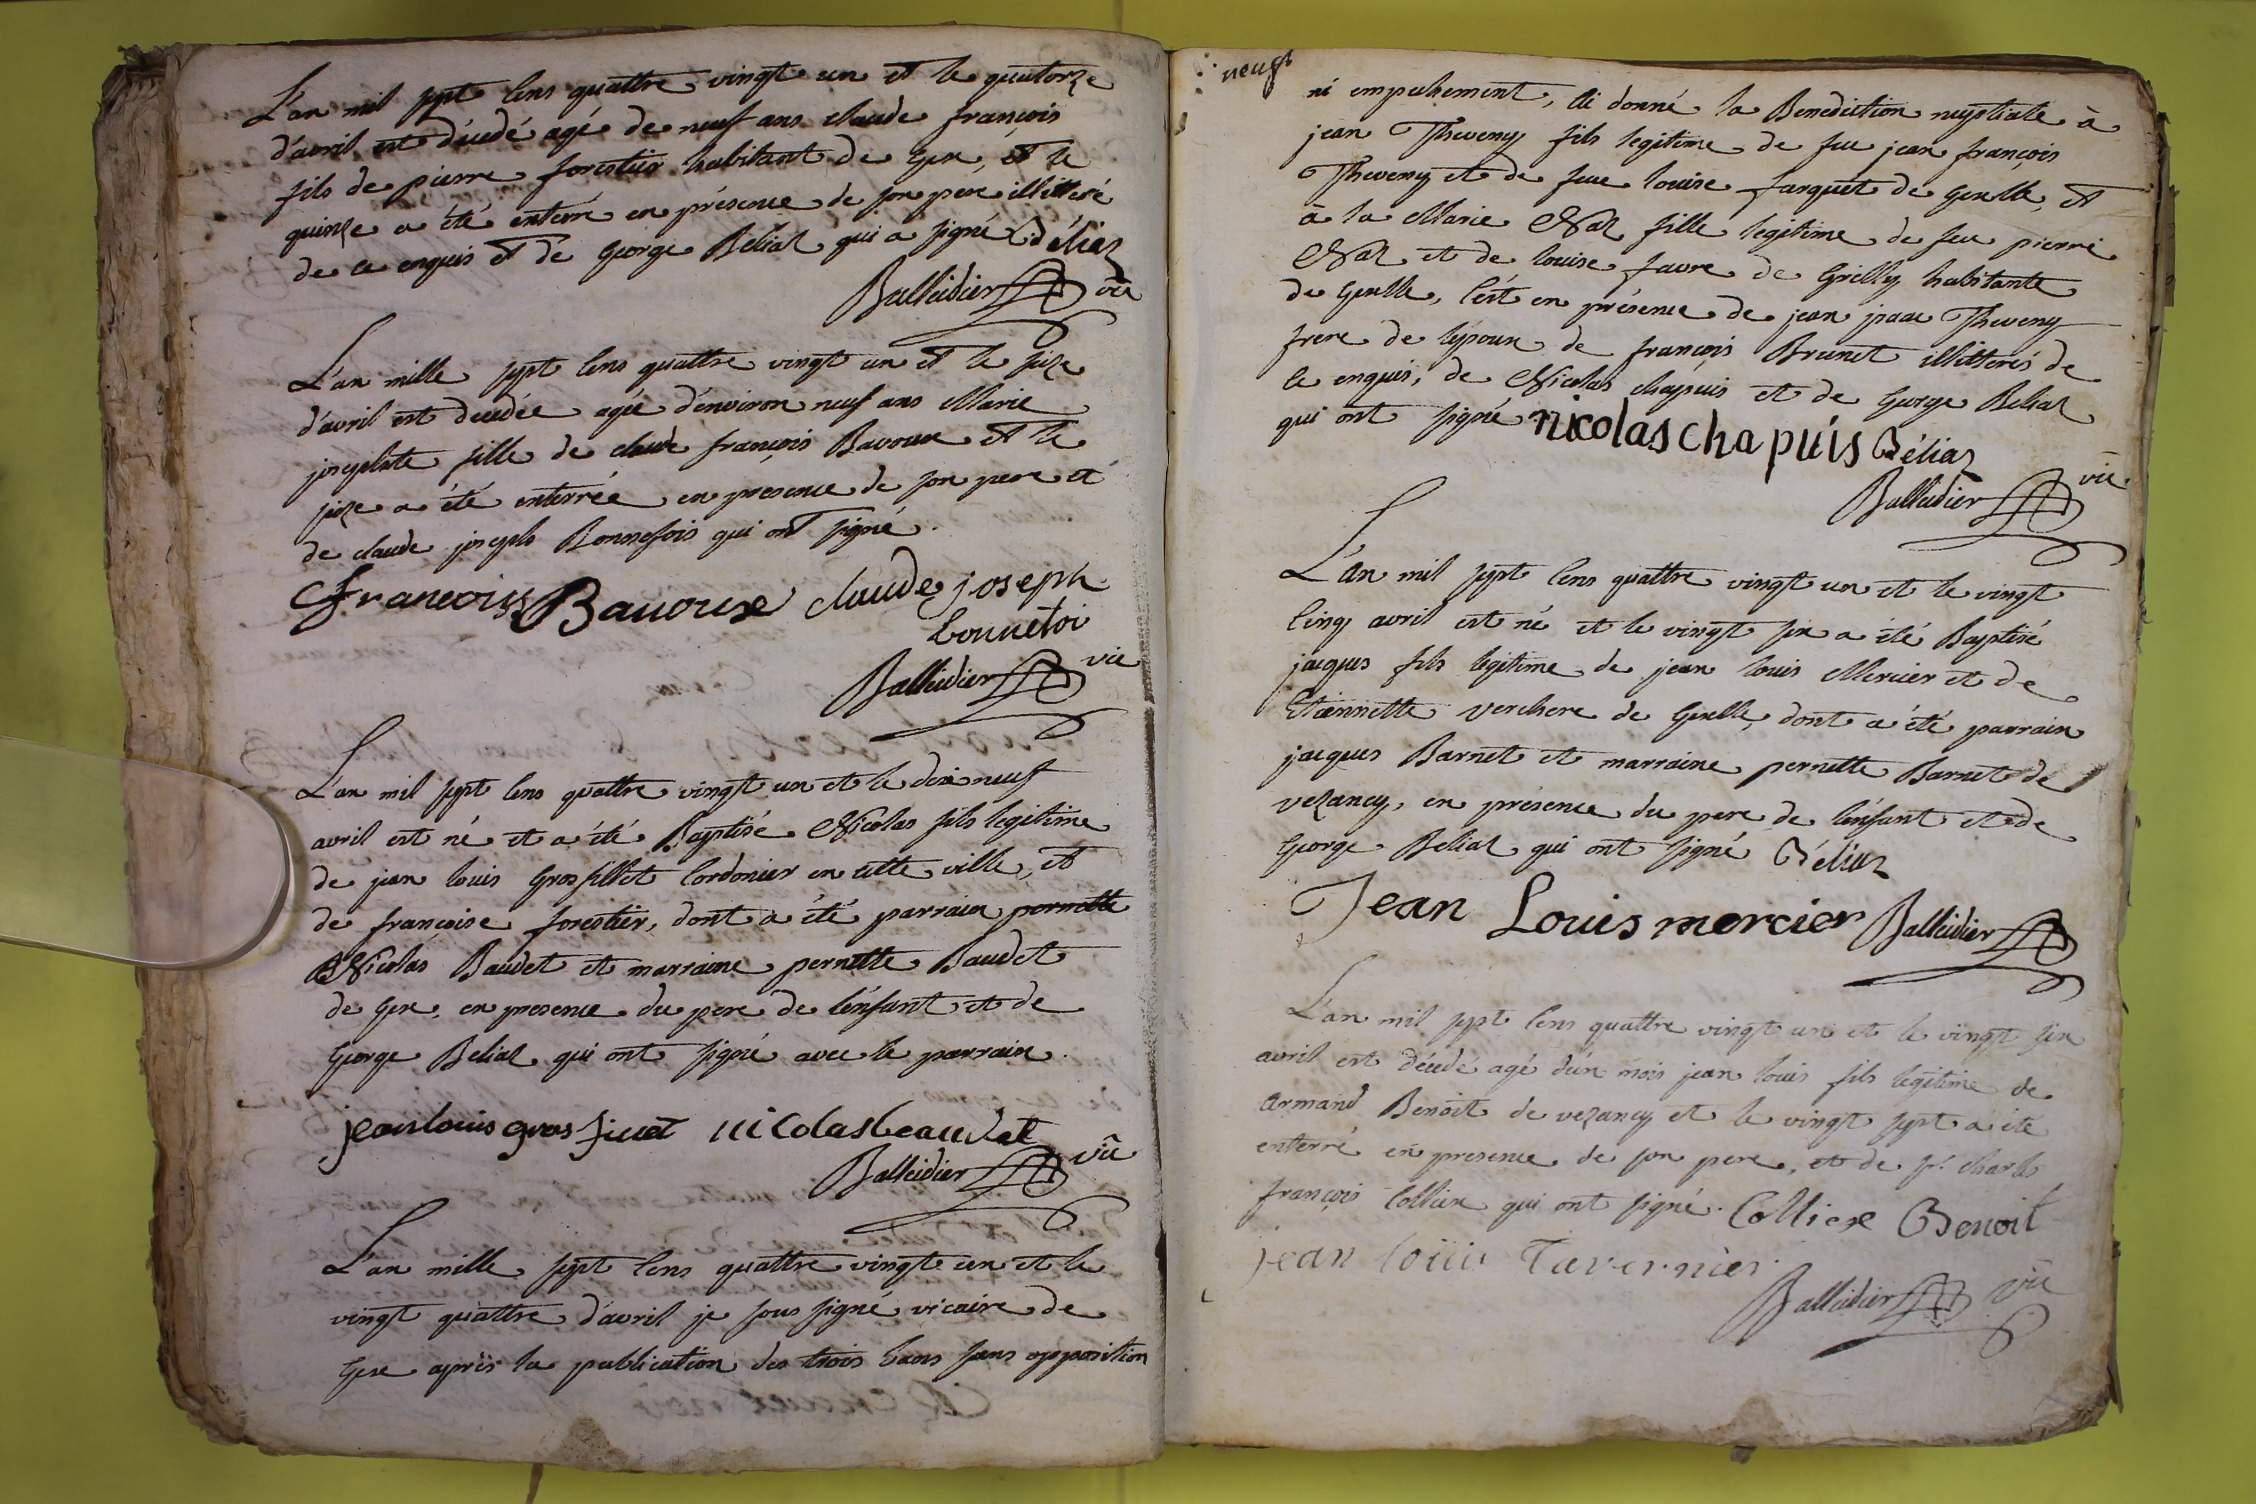 L'an mil sept cens quattre vingt un et le quatorze
d'avril est décedé agé de neuf ans claude françois
fils de pierre forestier habitant de Gex, et le
quinze a été enterré en présence de son pere illitteré
de ce enquis et de George Béliaz qui a signé Béliaz
Balleidier vic
L'an mille sept cens quattre vingt un et le size
d'avril est decedée agée d'environ neuf ans Marie
josephte fille de claude françois Bavoux et le
size a été enterrée en presence de son pere et
de claude joseph Bonnefois qui ont signé.
francois Bavoux claude joseph
bonnefoi
Balleidier vic
L'an mil sept cens quattre vingt un et le dix neuf
avril est né et a été Baptisé Nicolas fils legitime
de jean louis Grosfillet Cordonier en cette ville, et
de françoise forestier, dont a été parrain pernette
Nicolas Baudet et marraine pernette Baudet
de Gex, en presence du pere de l'enfant et de
George Beliaz qui ont signé avec le parrain.
jean louis gros fillet nicolas beaudet
Balleidier vic
L'an mille sept cens quattre vingt un et le
vingt quattre d'avril je sous signé vicaire de
Gex après la publication des trois bans sans opposition
neuf
ni empechement, ai donné la Benediction nuptiale à
jean Theveny fils legitime de feu jean françois
Theveny et de feue louise farquet de Gexlle, et
à la Marie Naz fille legitime de feu pierre
Naz et de louise favre de Grilly habitante
de Gexlle, c'est en présence de jean isaac Theveny
frere de l'epoux de françois Brunet illitterés de
ce enquis, de Nicolas chapuis et de George Beliaz
qui ont signé nicolas chapuis Béliaz
Balleidier vic
L'An mil sept cens quattre vingt un et le vingt
cinq avril est né et le vingt six a été Baptisé
jacques fils legitime de jean louis Mercier et de
Etiennette verchere de Gexlle, dont a été parrain
jacques Barnet et marraine pernette Barnet de
vezancy, en présence du pere de l'enfant et de
George Beliaz qui ont signé Béliaz
Jean Louis mercier Balleidier
L'an mil sept cens quattre vingt un et le vingt six
avril est décedé agé d'un mois jean louis fils legitime de
Armand Benoit de vezancy et le vingt sept a été
enterré en presence de son pere, et de sr. charles
françois Colliex qui ont signé. Colliex Benoit
jean louis Tavernier.
Balleidier vic